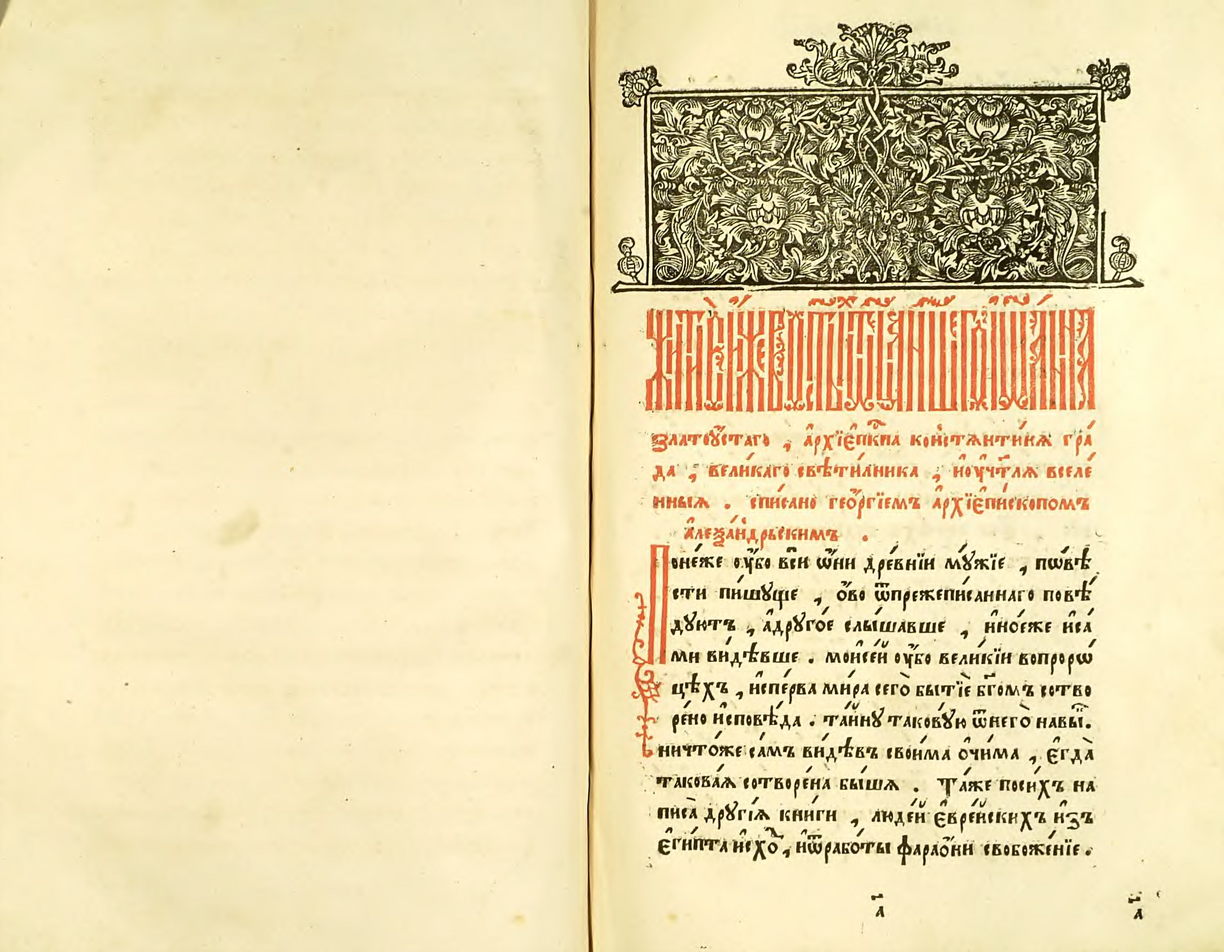 Житїѐ и҆́же во ст҃ы́хъ ѻ҆ц҃а̀ на́шегѡ і҆ѡа́нна
златоꙋ́стаго , а҆рхїе҆пⷭ҇кпа констѧнти́нѧ гра́
да , вели́каго свѣти́лника , и҆ᲂу҆чт҃лѧ вселе́
нныѧ . спи́сано гео́ргїемъ а҆рхїе҆пи́скопомъ
а҆леѯа́ндрьскимъ .
Поне́же ᲂу҆́бо всѝ ѻ҆́ни дре́внїи мꙋ́жїе , по́вѣ
сти пи́шꙋще , ѻ҆́во ѿпрежепи́саннаго повѣ́
дꙋютъ , а҆дрꙋго́е слы́шавше , и҆но́еже и҆са́
ми ви́дѣвше . мои҆се́й ᲂу҆́бо вели́кїи вопроро́
цѣхъ , и҆спе́рва ми́ра сего̀ бытїѐ бг҃омъ сотво
ре́но и҆сповѣ́да . та́йнꙋ такову́ю ѿнего̀ навы́к .
ничто́же са́мъ ви́дѣвъ свои́ма ѻ҆чи́ма , е҆гда̀
такова́ѧ сотворе́на бы́шѧ . Та́же поси́хъ на
писа̀ дрꙋгі́ѧ кни́ги , люде́й е҆вре́йскихъ и҆зъ
е҆ги́пта и҆схо́д , и҆ѿрабо́ты фарао́ни свобоже́нїе .
а҃
а҃